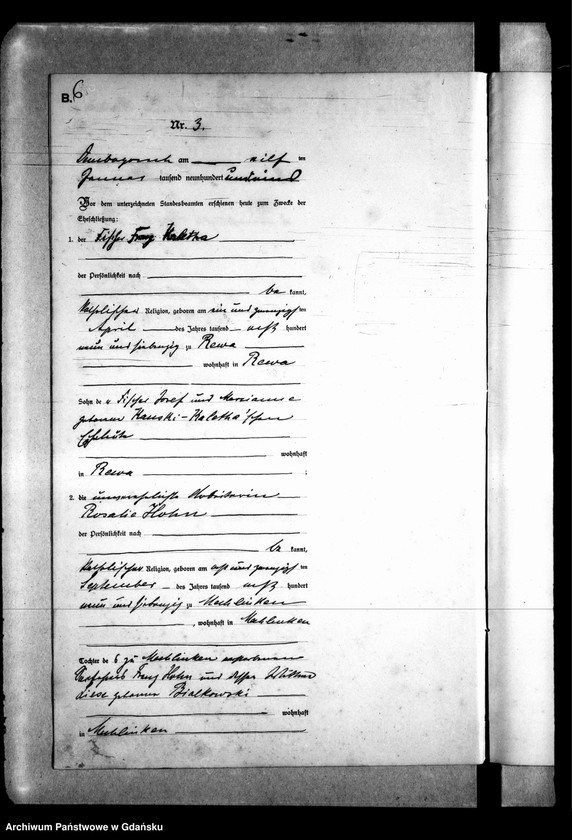 B. 6
Nr. 3.
am eilf ten
Januar tausend neunhundert
Vor dem unterzeichneten Standesbeamten erschienen heute zum Zwecke der
Eheschließung:
1. der Fischer Franz Kaletha
der Persönlichkeit nach
be kannt,
katholischer Religion, geboren am ein und zwanzigsten
April des Jahres tausend acht hundert
neun und siebenzig zu Rewa
wohnhaft in Rewa
Sohn de r Fischer Josef und Marianne
geborene Kanski-Kaletha'schen
Eheleute
wohnhaft
in Rewa ;
2. die unverehelichte Arbeiterin
Rosalie Hohn
der Persönlichkeit nach
be kannt,
katholischer Religion, geboren am acht und zwanzigsten
September des Jahres tausend acht hundert
neun und siebenzig zu Mechlinken
, wohnhaft in Mechlinken
Tochter de s zu Mechlinken verstorbenen
Franz Hohn und dessen Wittwe
diese geborene Bialkowski
wohnhaft
in Mechlinken
Archiwum Państwowe w Gdańsku